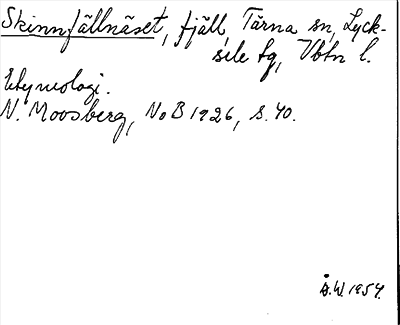 Skinnfjällnäset, fjäll, Tärna sn, Lyck-
sele tg, Vbtn l.
Etymologi.
N. Moosberg, NoB 1926, s. 40.
Å.W. 1954.